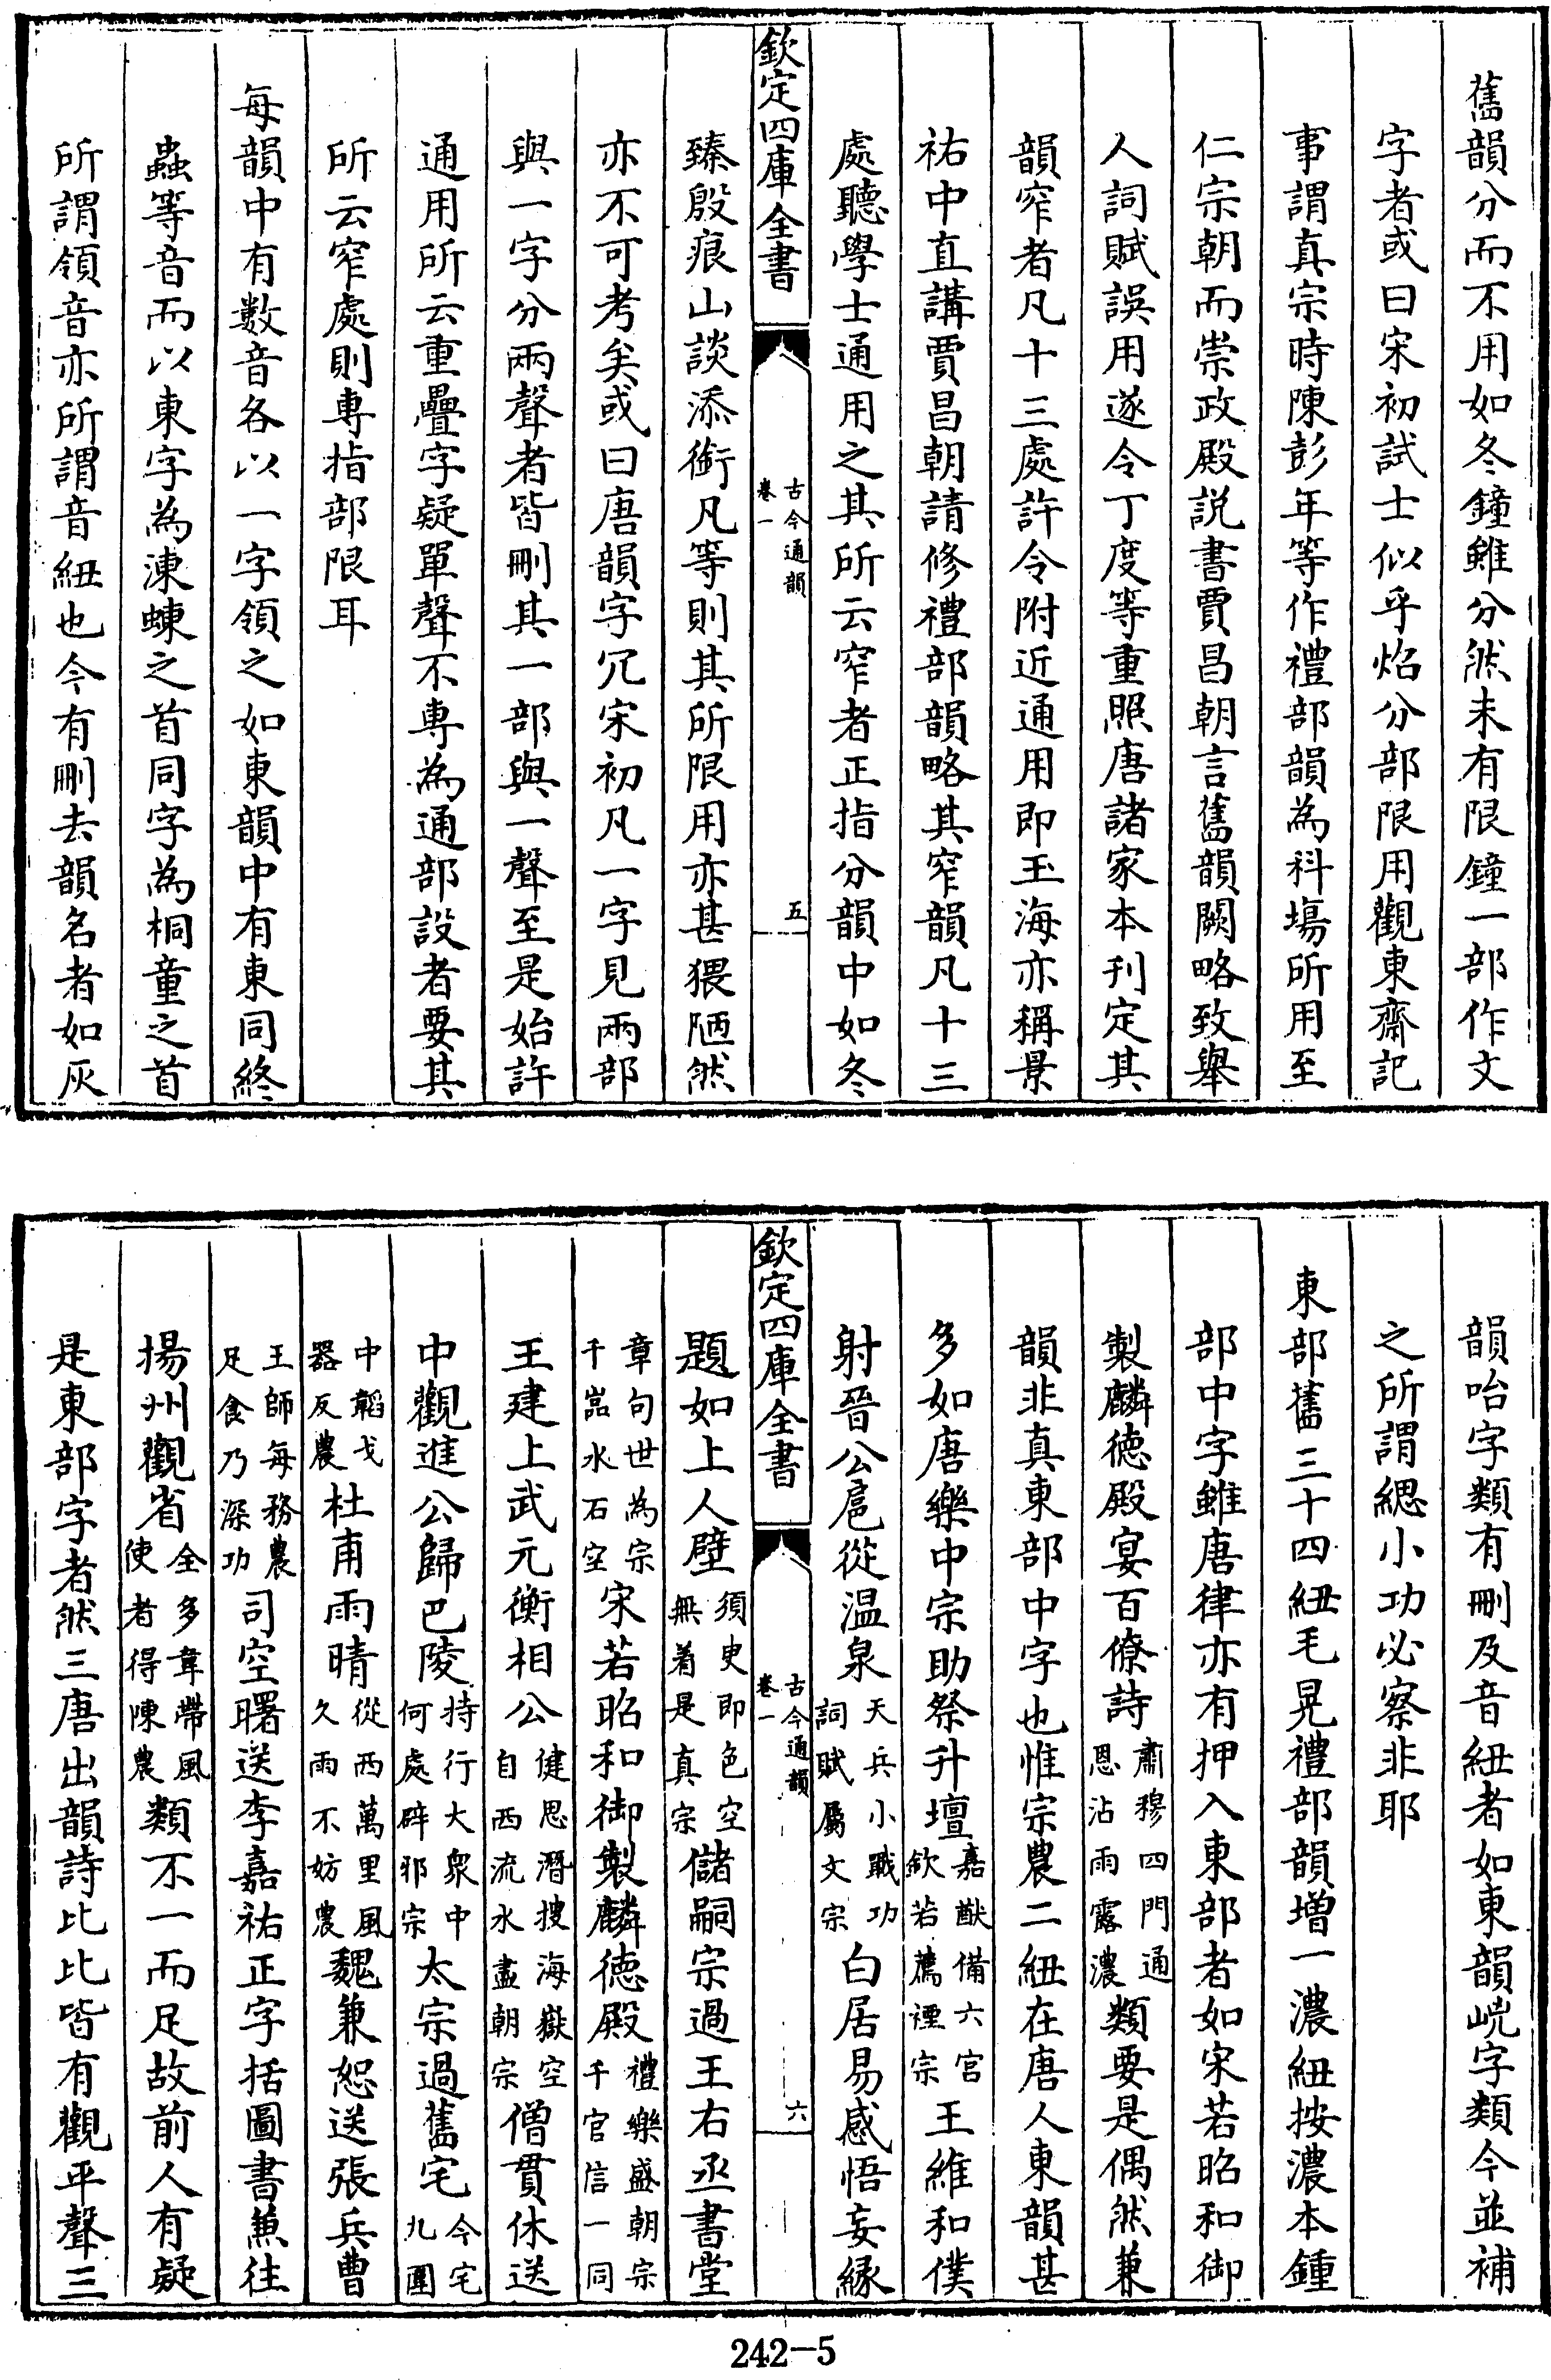 舊韻分而不用如冬鐘雖分然未有限鐘一部作文
字者或曰宋初試士似乎焰分部限用觀東齋記
事謂真宗時陳彭年等作禮部韻為科塲所用至
仁宗朝而崇政殿説書賈昌朝言舊韻闕略致舉
人詞賦誤用遂令丁度等重照唐諸家本刋定其
韻窄者凡十三處許令附近通用即玉海亦稱景
祐中直講賈昌朝請修禮部韻略其窄韻凡十三
處聽學士通用之其所云窄者正指分韻中如冬
欽定四庫全書
古今通韻
卷一
五
臻殷痕山談添銜凡等則其所限用亦甚猥陋然
亦不可考矣或曰唐韻字冗宋初凡一字見兩部
與一字分兩聲者皆刪其一部與一聲至是始許
通用所云重疊字疑單聲不專為通部設者要其
所云窄處則專指部限耳
每韻中有數音各以一字領之如東韻中有東同終
蟲等音而以東字為涷蝀之首同字為桐童之首
所謂領音亦所謂音紐也今有刪去韻名者如灰
韻咍字類有刪及音紐者如東韻㟅字類今並補
之所謂緦小功必察非耶
東部舊三十四紐毛晃禮部韻增一濃紐按濃本鍾
部中字雖唐律亦有押入東部者如宋若昭和御
製麟徳殿宴百僚詩肅穆四門通
恩沾雨露濃類要是偶然兼
韻非真東部中字也惟宗農二紐在唐人東韻甚
多如唐樂中宗助祭升壇嘉猷備六宫
欽若薦禋宗王維和僕
射晉公扈從温泉天兵小戰功
詞賦屬文宗白居易感悟妄縁
欽定四庫全書
古今通韻
卷一
六
題如上人壁須史即色空
無着是真宗儲嗣宗過王右丞書堂
章句世為宗
千嵓水石空宋若昭和御製麟徳殿禮樂盛朝宗
千官信一同
王建上武元衡相公健思潛搜海嶽空
自西流水盡朝宗僧貫休送
中觀進公歸巴陵持行大衆中
何處辟邪宗太宗過舊宅今宅
九圍
中韜戈
器反農杜甫雨晴從西萬里風
久雨不妨農魏兼恕送張兵曹
王師每務農
足食乃深功司空曙送李嘉祐正字括圖書兼往
揚州觀省全多韋帶風
使者得陳農類不一而足故前人有疑
是東部字者然三唐出韻詩比比皆有觀平聲三
242-5